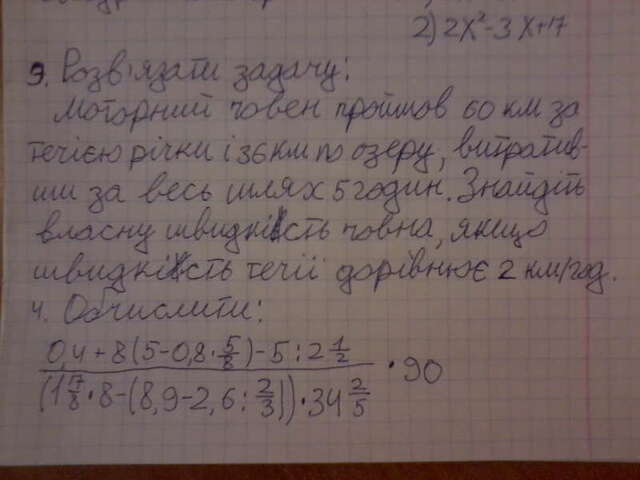 2) 2x²-3x+17
3. Розв'язати задачу:
Моторний човен пройшов 60 км за
течією річки і 36 км по озеру, витратив-
ши за весь шлях 5 годин. Знайдіть
власну швидкість човна, якщо
швидкість течії дорівнює 2 км/год.
4. Обчислити:
0,4+8(5-0,8·5/8)-5:2 1/2
(1 7/8·8-(8,9-2,6:2/3))·34 2/5 ·90